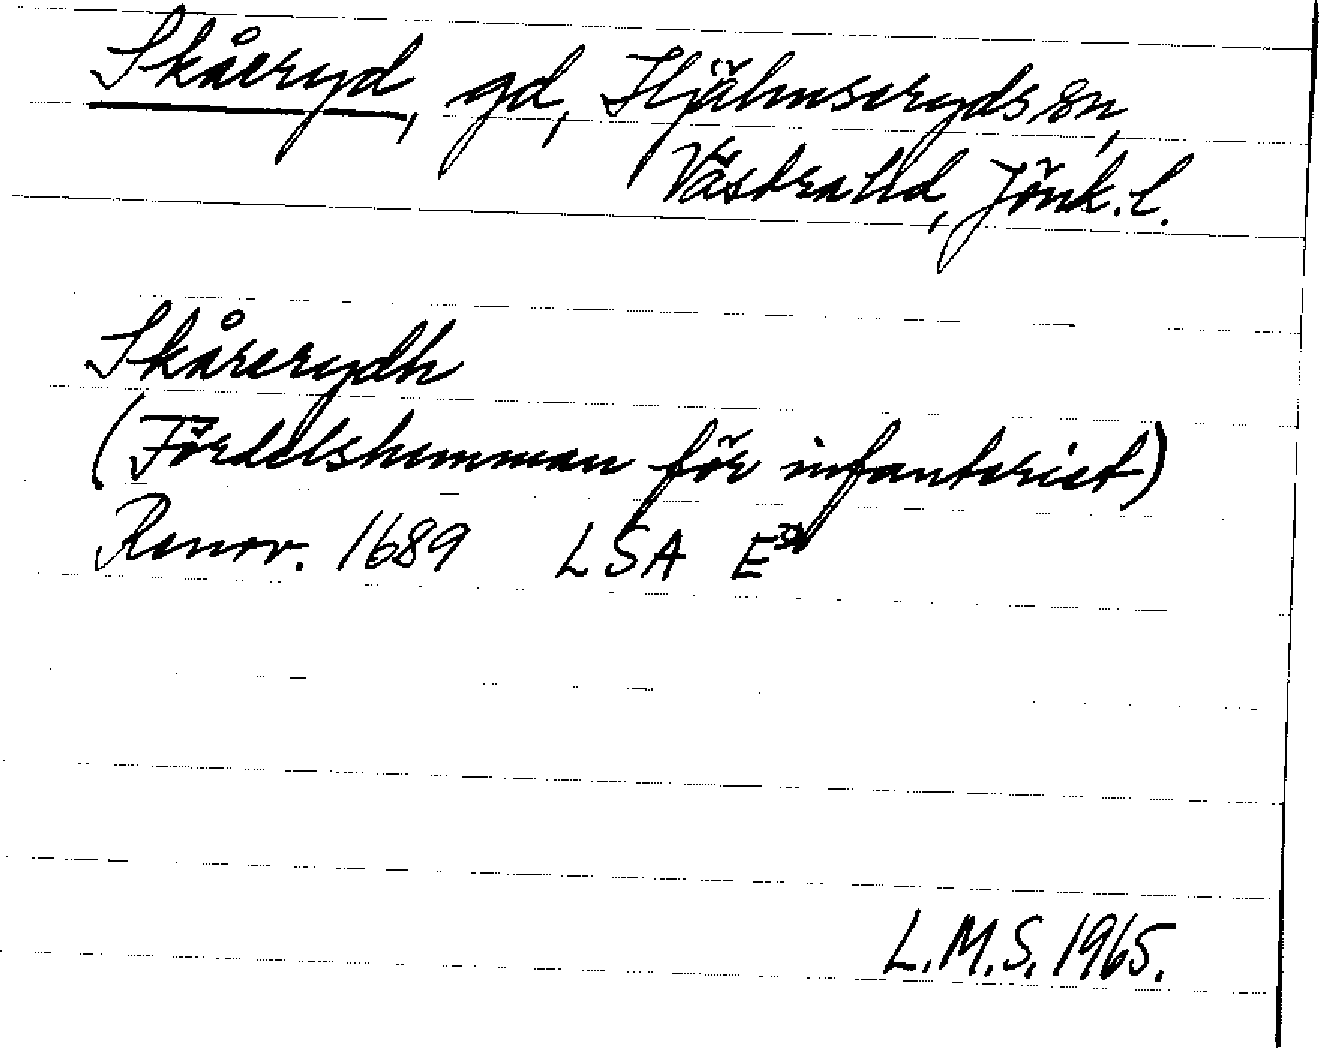 Skåeryd, gd, Hjälmseryds sn,
Västra hd, Jönk. l.
Skårerydh
(Fördelshemman för infanteriet)
Renov. 1689 LSA E
L.M.S. 1965.